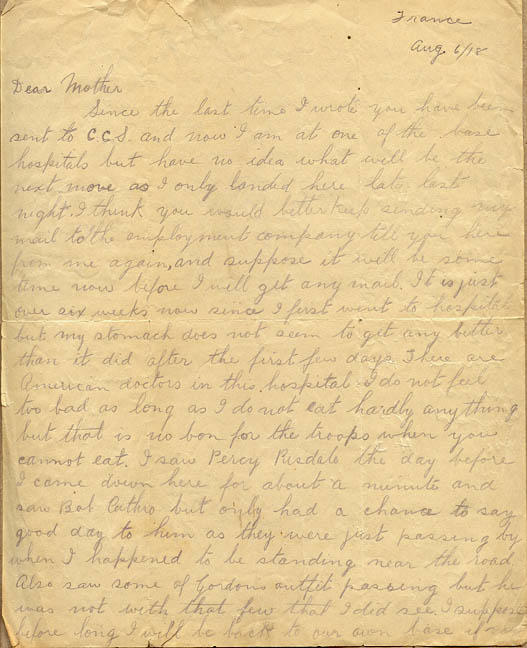 France
Aug. 6/18
Dear Mother
Since the last time I wrote you have been
sent to C.C.S. and now I am at one of the base
hospitals but have no idea what will be the
next move as I only landed here late last
night. I think you would better keep sending my
mail to the employment company till you here
from me again, and suppose it will be some
time now before I will get any mail. It is just
over six weeks now since I first went to hospital
but my stomach does not seem to get any better
than it did after the first few days. There are
American doctors in this hospital. I do not feel
too bad as long as I do not eat hardly anything
but that is no bon for the troops when you
cannot eat. I saw Percy the day before
I came down here for about a minute and
saw Bob Cathro but only had a chance to say
good day to him as they were just passing by
when I happened to be standing near the road.
Also saw some of Gordons outfit passing but he
was not with that few that I did see. I suppose
before long I will be back to our own base if